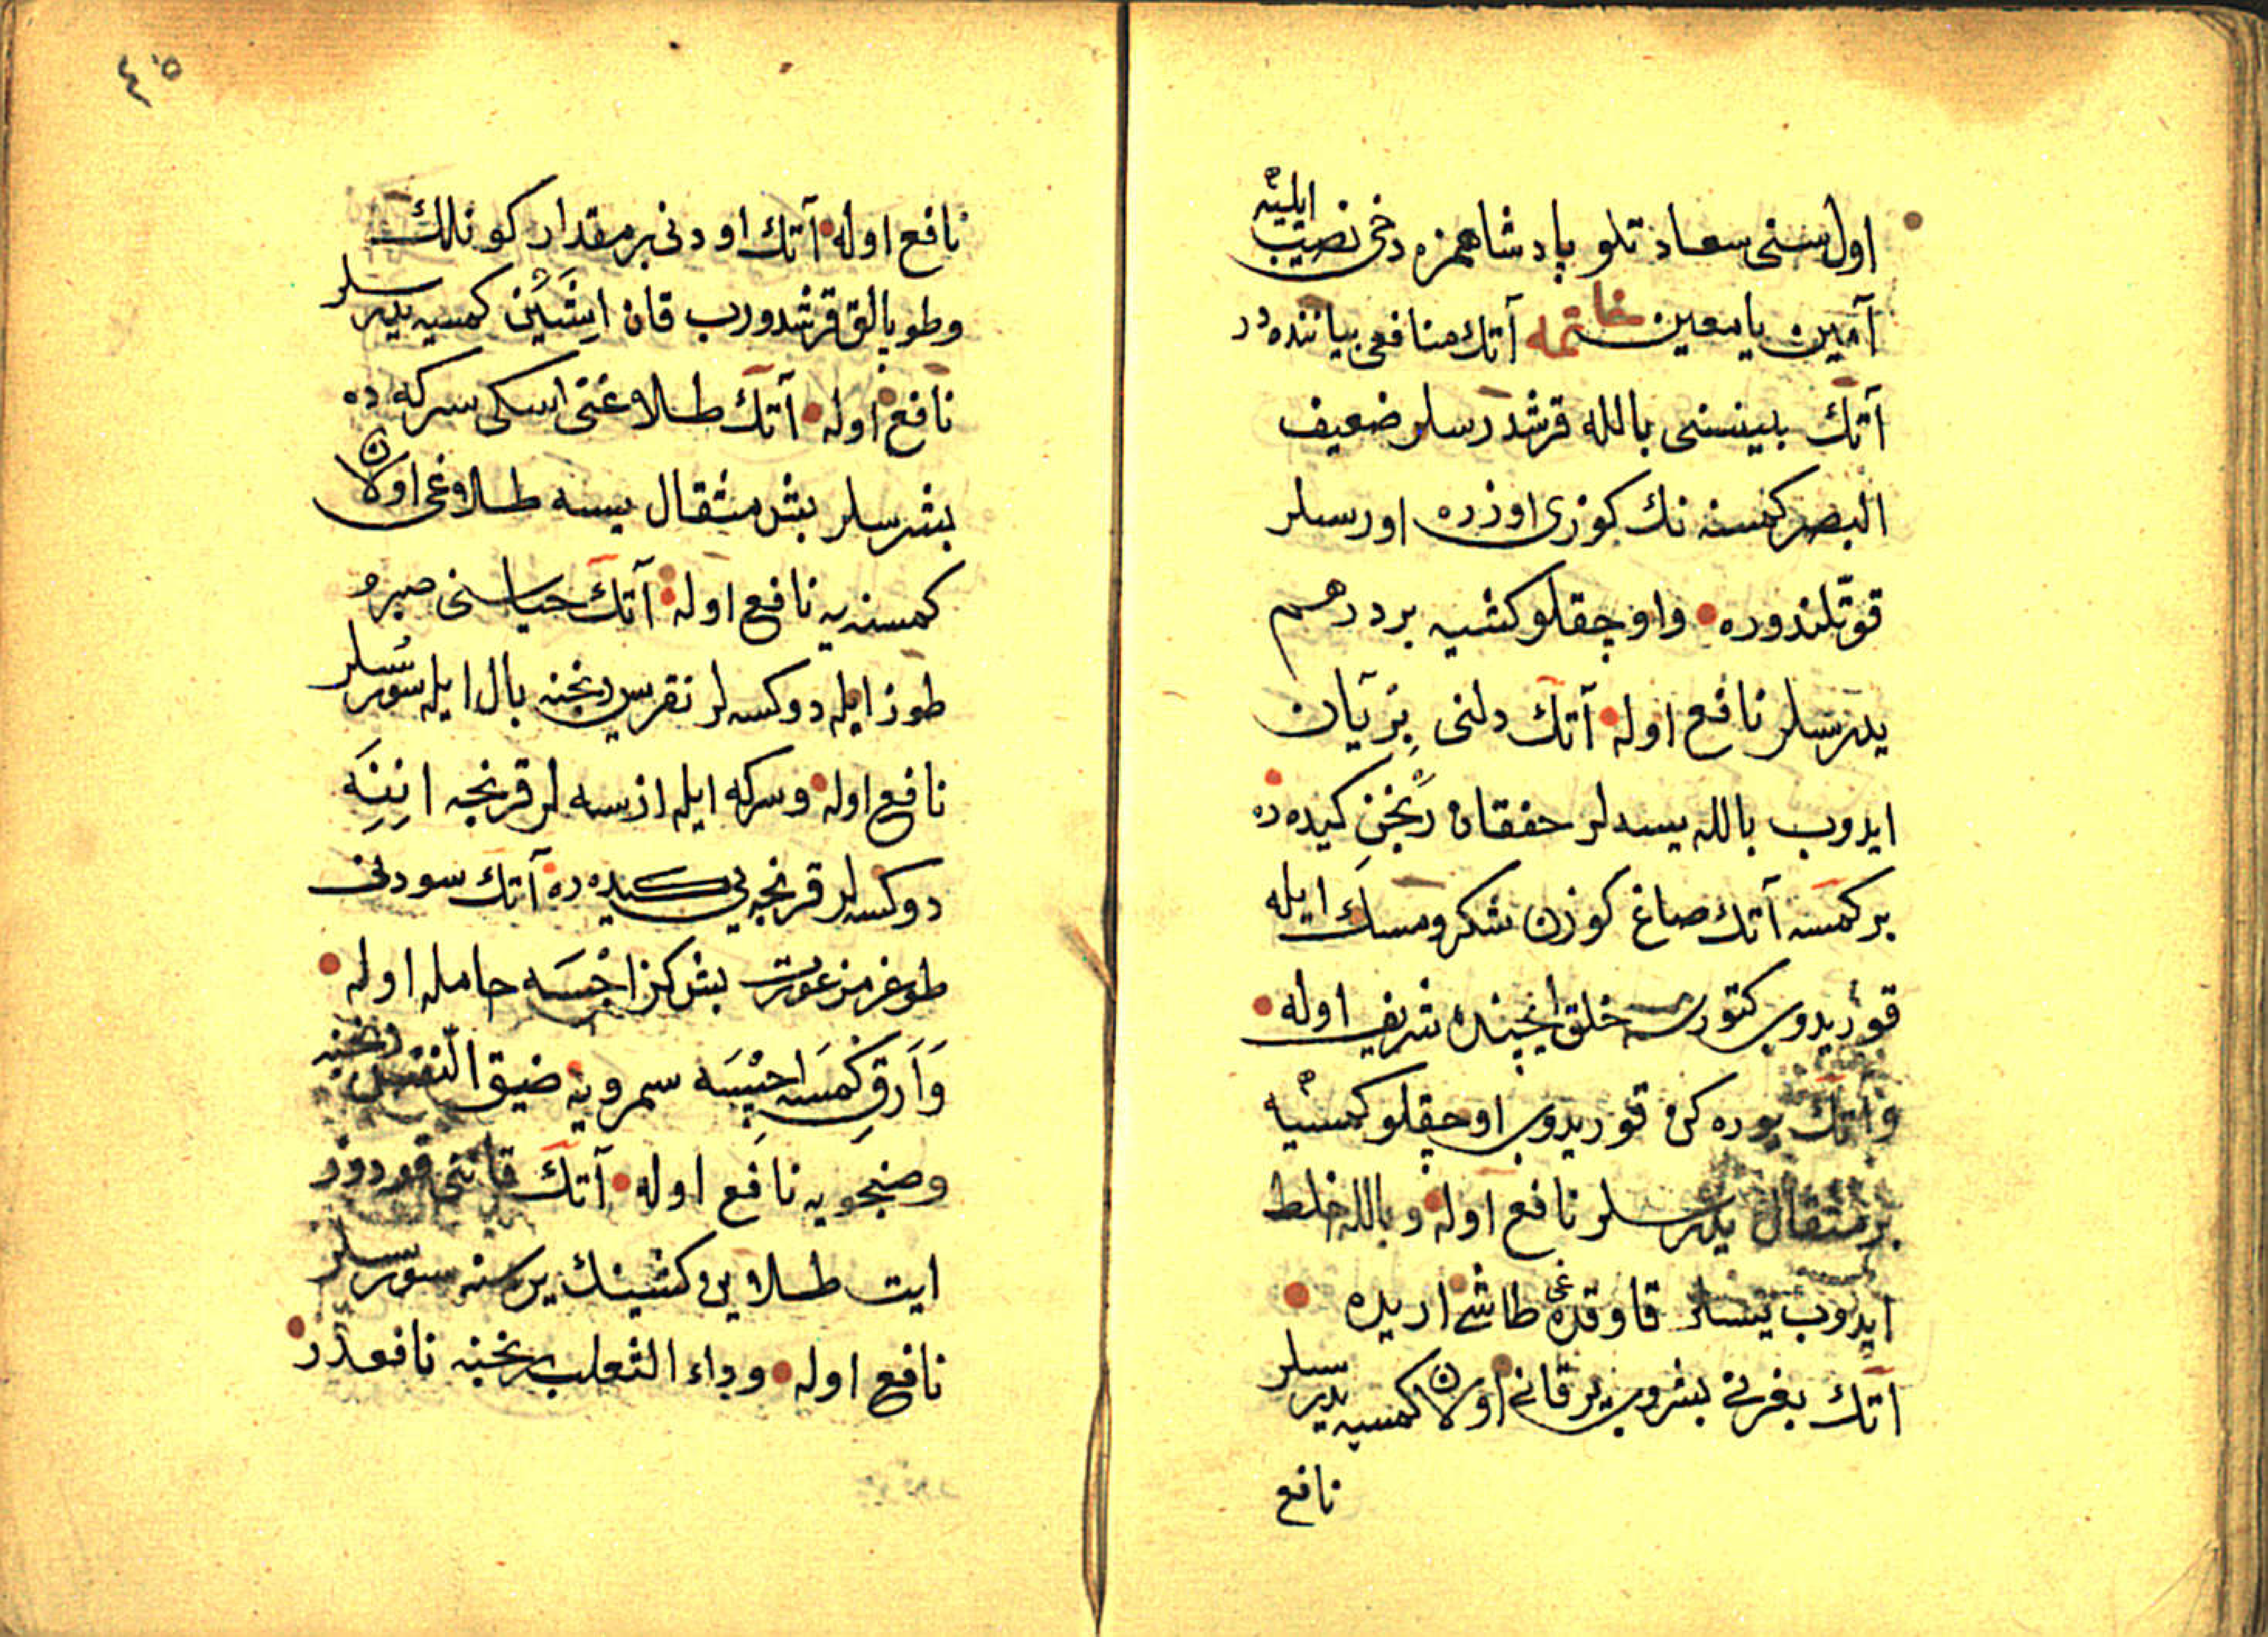 اول سنى سعادتلو پادشاهمزه دخى نصيب ايليه
آمين يا معين خاتمه آتك منافعى بياننده در
آتك بيينسى بالله قرشدرسلر ضعيف
البصر كمسنه نك كوزى اوزره اورسلر
قوتلندوره واوچقلو كشيه بر درهم
يدرسلر نافع اوله آتك دلنى بريان
ايدوب بالله يسه لر خفقان رنجن كيده ره
بر كمسه آتك صاغ كوزن شكر ومسك ايله
قوريدوب كتورسه خلق ايچنده شريف اوله
وآتك يوره كن قوريدوب اوچقلو كمسيه
بر مثقال يدرسلر نافع اوله وبالله خلط
ايدوب يسلر قاوقده غى طاشى اريده
آتك بغرنى بشروب يرقانى اولان كمسيه يدرسلر
نافع
٤٥
نافع اوله آتك اودنى بر مقدار كونلك
وطوز بالق قرشدورب قان اشين كمسيه يدرسلر
نافع اوله آتك طلاغنى اسكى سركه ده
بشرسلر بش مثقال يسه طلاغى اولان
كمسنه يه نافع اوله آتك خياسنى صيرو
طوز ايله دوكسه لر نقريس رنجنه بال ايله سورسلر
نافع اوله وسركه ايله ازسه لر قرنجه اننه
دوكسه لر قرنجه يى كيده ره آتك سودنى
طوغرمز عورت بش كز اچسه حامله اوله
وارق كمسه اچسه سمرويه ضيق النفس رنجنه
وصنجويه نافع اوله آتك قاننى قوردوز
ايت طلايى كشينك يرسنه سورسلر
نافع اوله وداء الثعلب رنجنه نافعدر